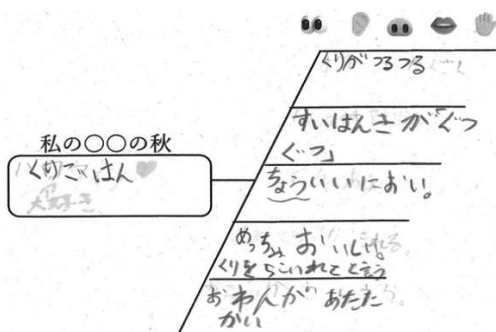 私の○○の秋
くりごはん
大好き
くりがつるつる
すいはんきが「ぐつ
ぐつ」
ちょういいにおい。
めっちゃおいしい。
くりをらいれてと言う
おわんがあたた
かい